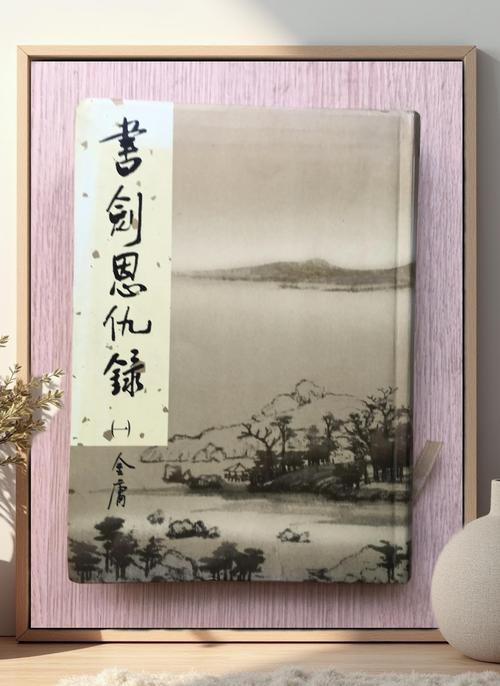 書劍恩仇録
(一)
金庸